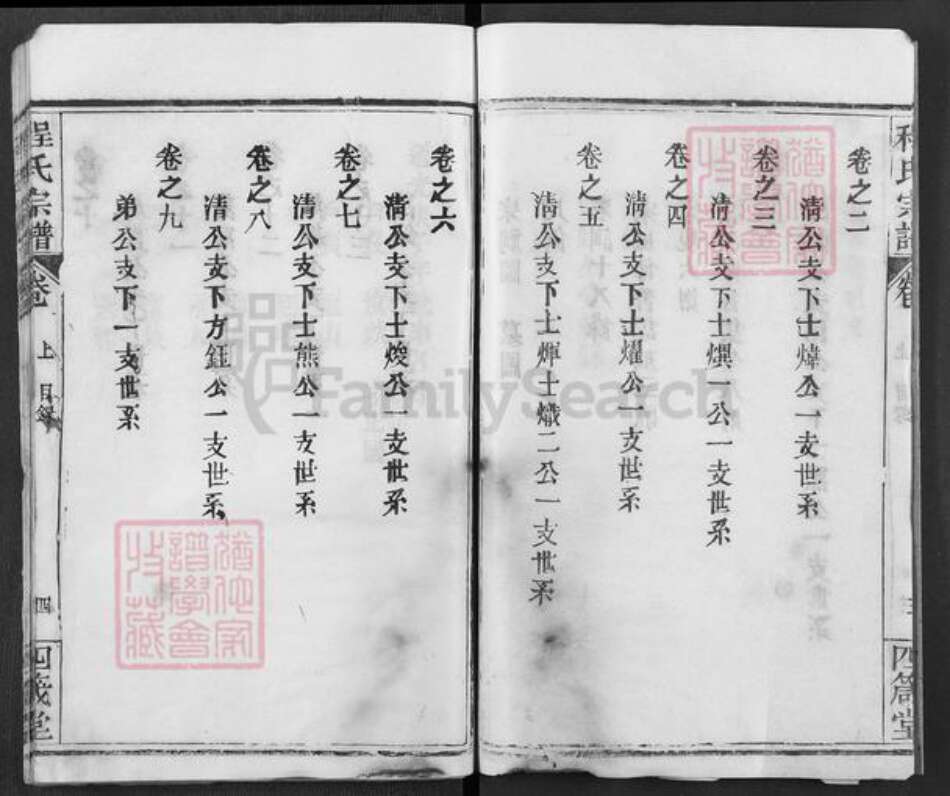 程氏宗譜
卷
三
四箴堂
卷之二
淸公支下士煒公一支世系
卷之三
淸公支下士熼一公一支世系
卷之四
淸公支下士燿公一支世系
卷之五
淸公支下士煇士熾二公一支世系
卷之六
淸公支下士焌公一支世系
卷之七
淸公支下士熊公一支世系
卷之八
淸公支下方鈺公一支世系
卷之九
弟公支下一支世系
程氏宗譜
卷
上 目錄
四
四箴堂
猶他家譜學會收藏
猶他家譜學會收藏
FamilySearch